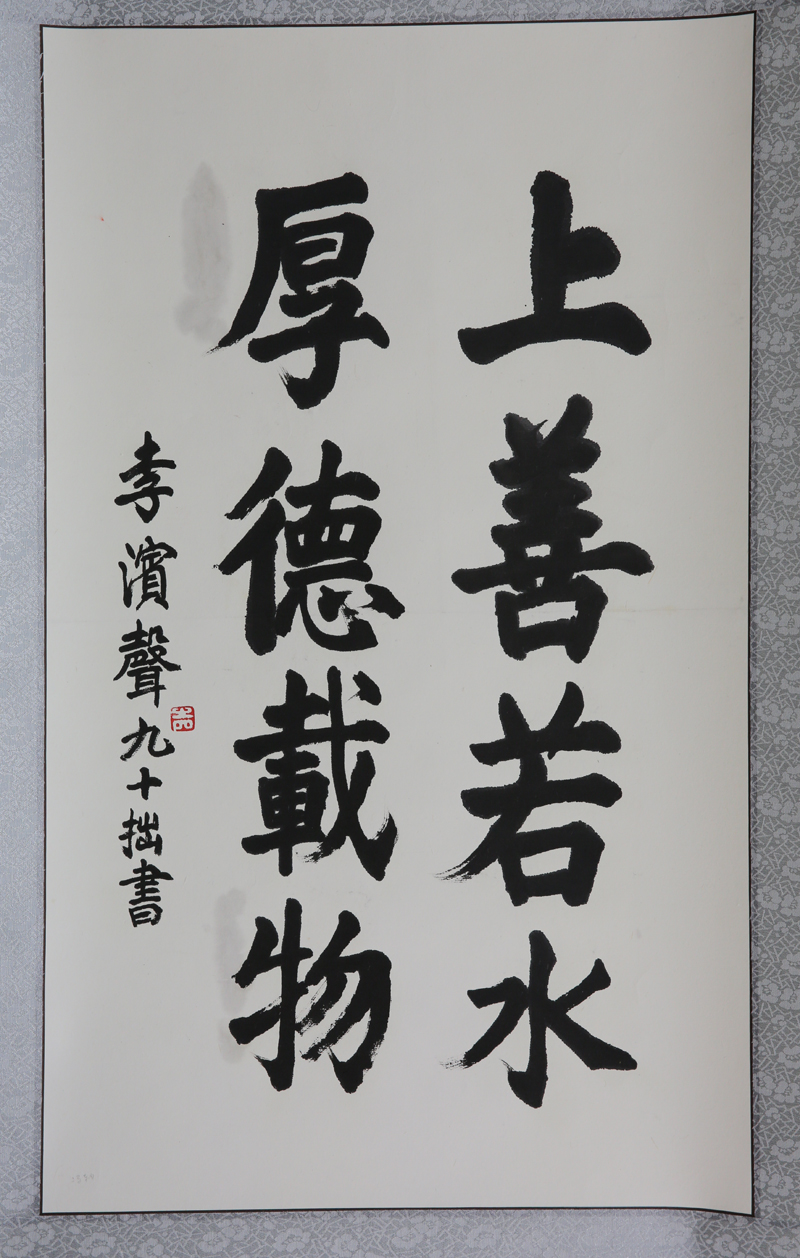 上善若水
厚德載物
李濱聲九十拙書